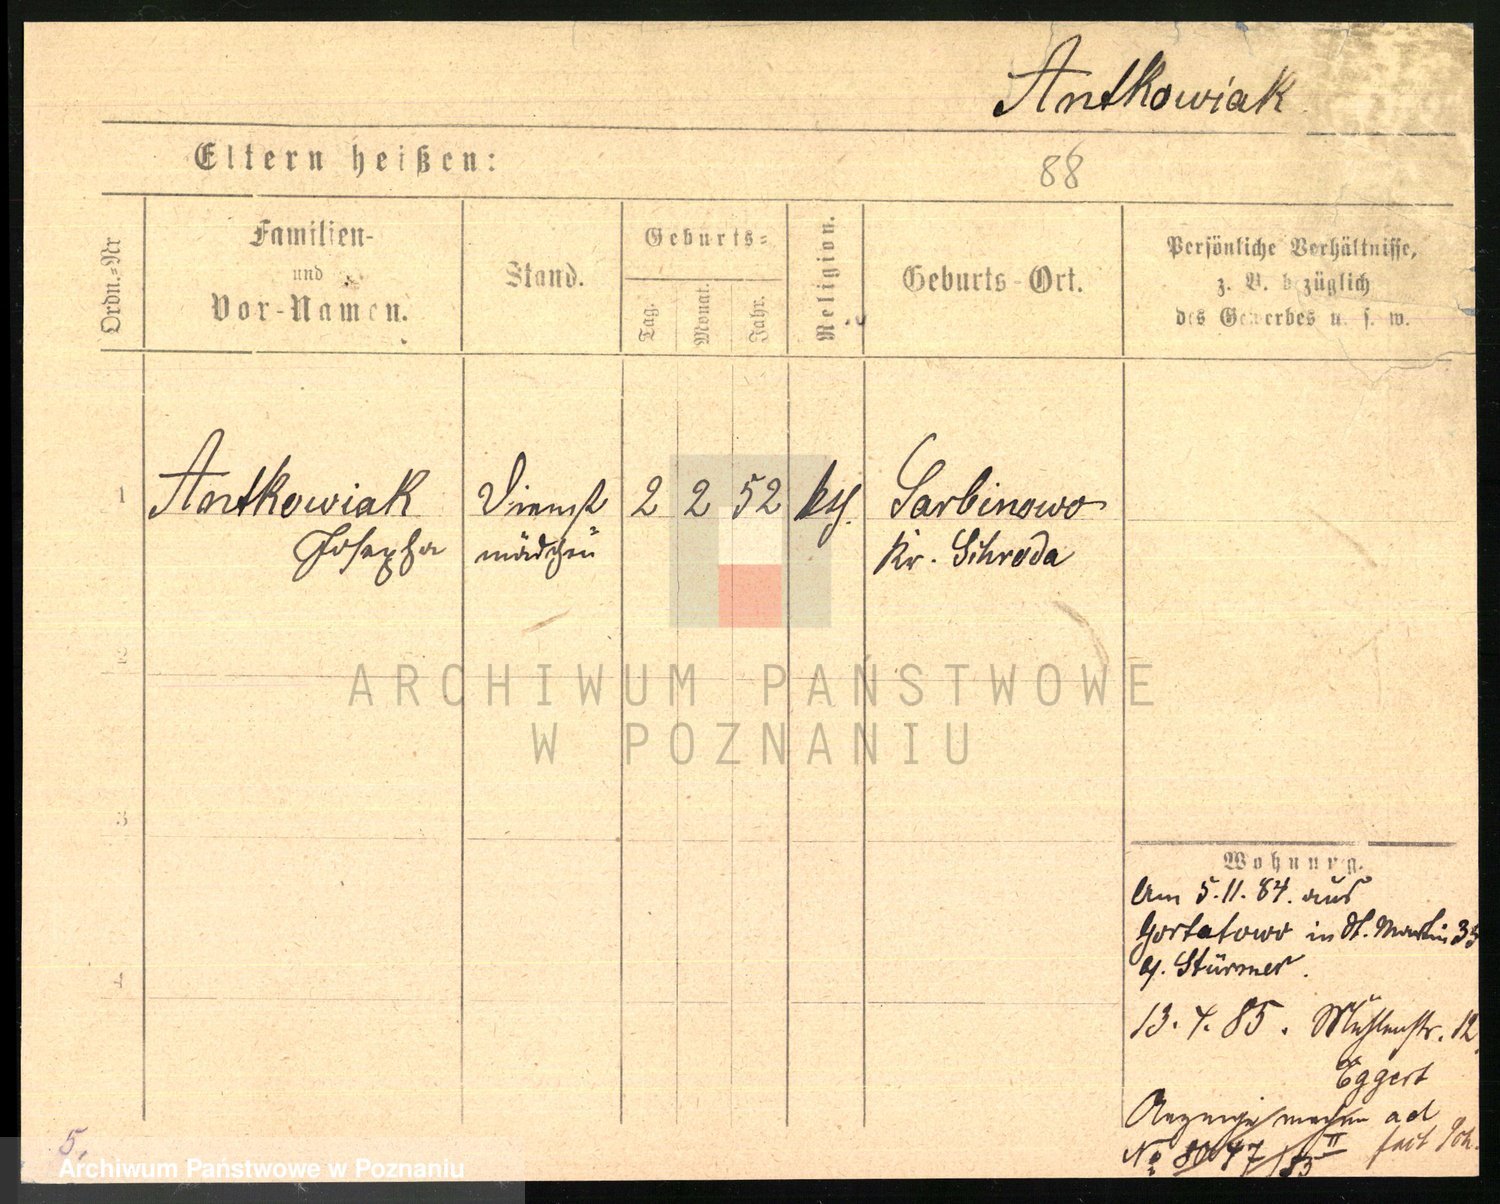 Antkowiak
Eltern heißen:
88
Ordn.-Nr
Familien-
und
Vor-Namen.
Stand.
Geburts-
Tag.
Monat.
Jahr.
Religion.
Geburts-Ort.
Persönliche Verhältnisse,
z. B. bezüglich
des Gewerbes u. s. w.
1 Antkowiak Dienst 2 2 52 kth. Sarbinowo
Josepha mädchen Kr. Schroda
2
3
4
Wohnung.
Am 5.11.84. aus
Gortatowo in St. Martin 33
Stürmer.
13.4.85. Mühlenstr. 12
Eggert
Anzeige machen ad
No
5.
ARCHIWUM PAŃSTWOWE
W POZNANIU
Archiwum Państwowe w Poznaniu